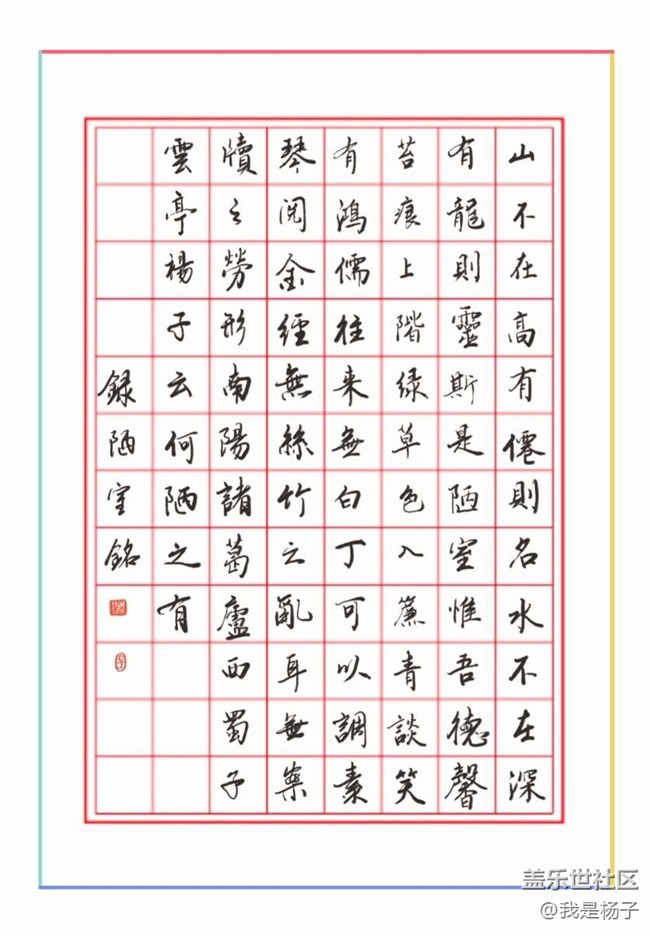 山不在高有僊則名水不在深
有龍則靈斯是陋室惟吾德馨
苔痕上階緑草色入簾青談笑
有鴻儒往来無白丁可以調素
琴閲金經無絲竹之亂耳無案
牘之勞形南陽諸葛廬西蜀子
雲亭楊子云何陋之有
録陋室銘
盖乐世社区
@我是杨子